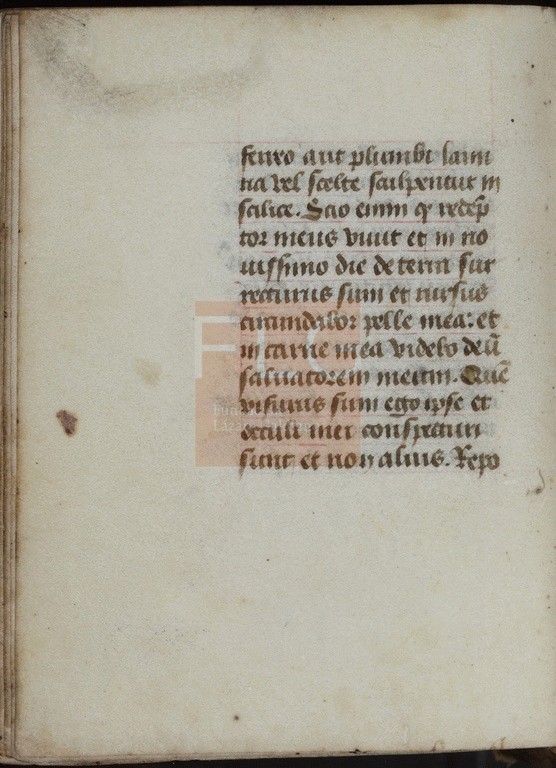 ferro aut plumbi lami
na vel scelte sculpentur in
scilice. Scio enim qr redẽp
tor meus vivit et in no
vissimo die de terra sur
recturus sum et rursus
circundabor pelle mea: et
in carne mea videbo deũ
salvatorem meum. Quẽ
visurus sum ego ipse et
occuli mei conspecturi
sunt et non alius. Repo
FLG
Lázaro